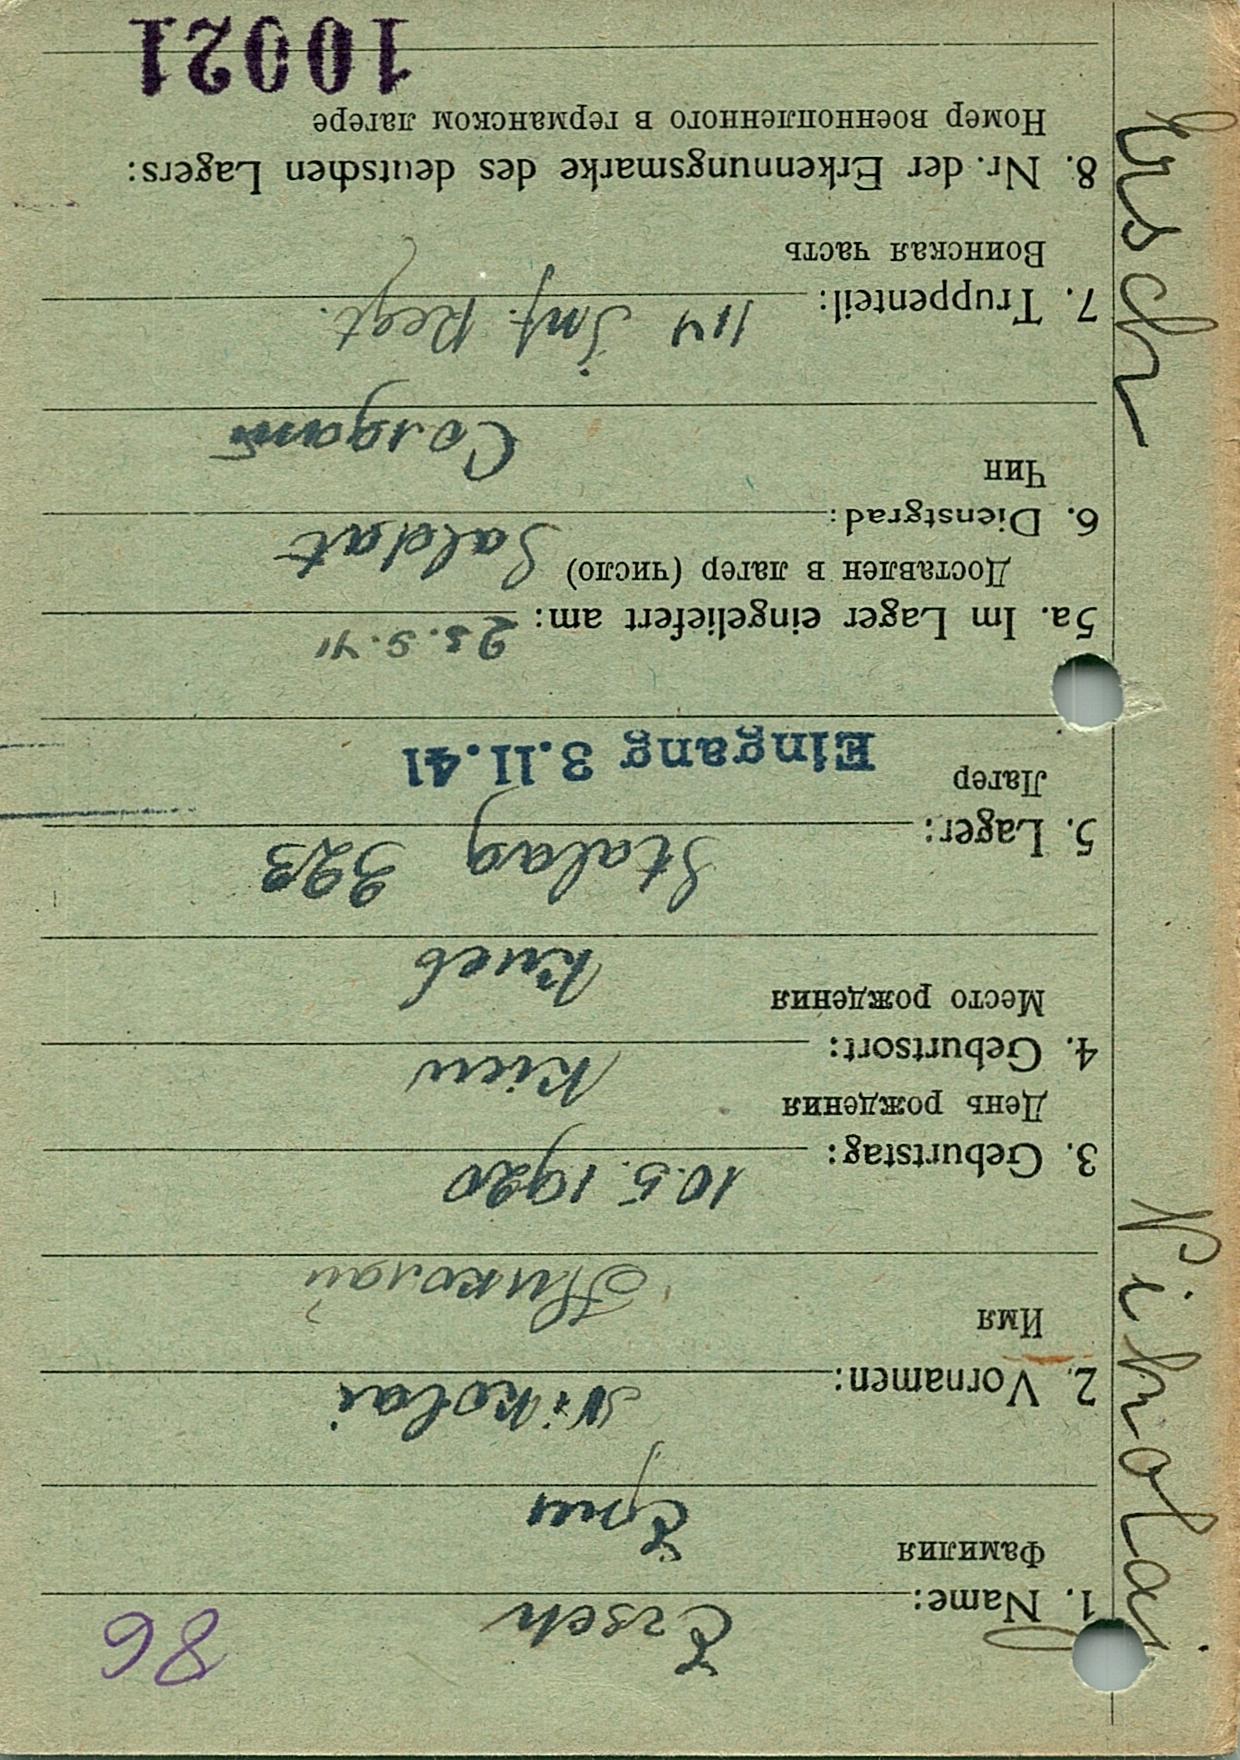 86
1. Name: Ersch
Фамилия Ерш
2. Vornamen: Nikolai
Имя Николай
3. Geburtstag: 10.5.1920
День рождения
4. Geburtsort: Kiew
Место рождения Киев
5. Lager: Stalag 323
Лагер Eingang 3.11.41
5a. Im Lager eingeliefert am: 23.9.41
Доставлен в лагер (число)
6. Dienstgrad: Saldat
Чин Солдат
7. Truppenteil: 114 Inf. Regt.
Воинская часть
8. Nr. der Erkennungsmarke des deutschen Lagers:
Номер военнопленного в германском лагере
10021
Ersch Nikolai